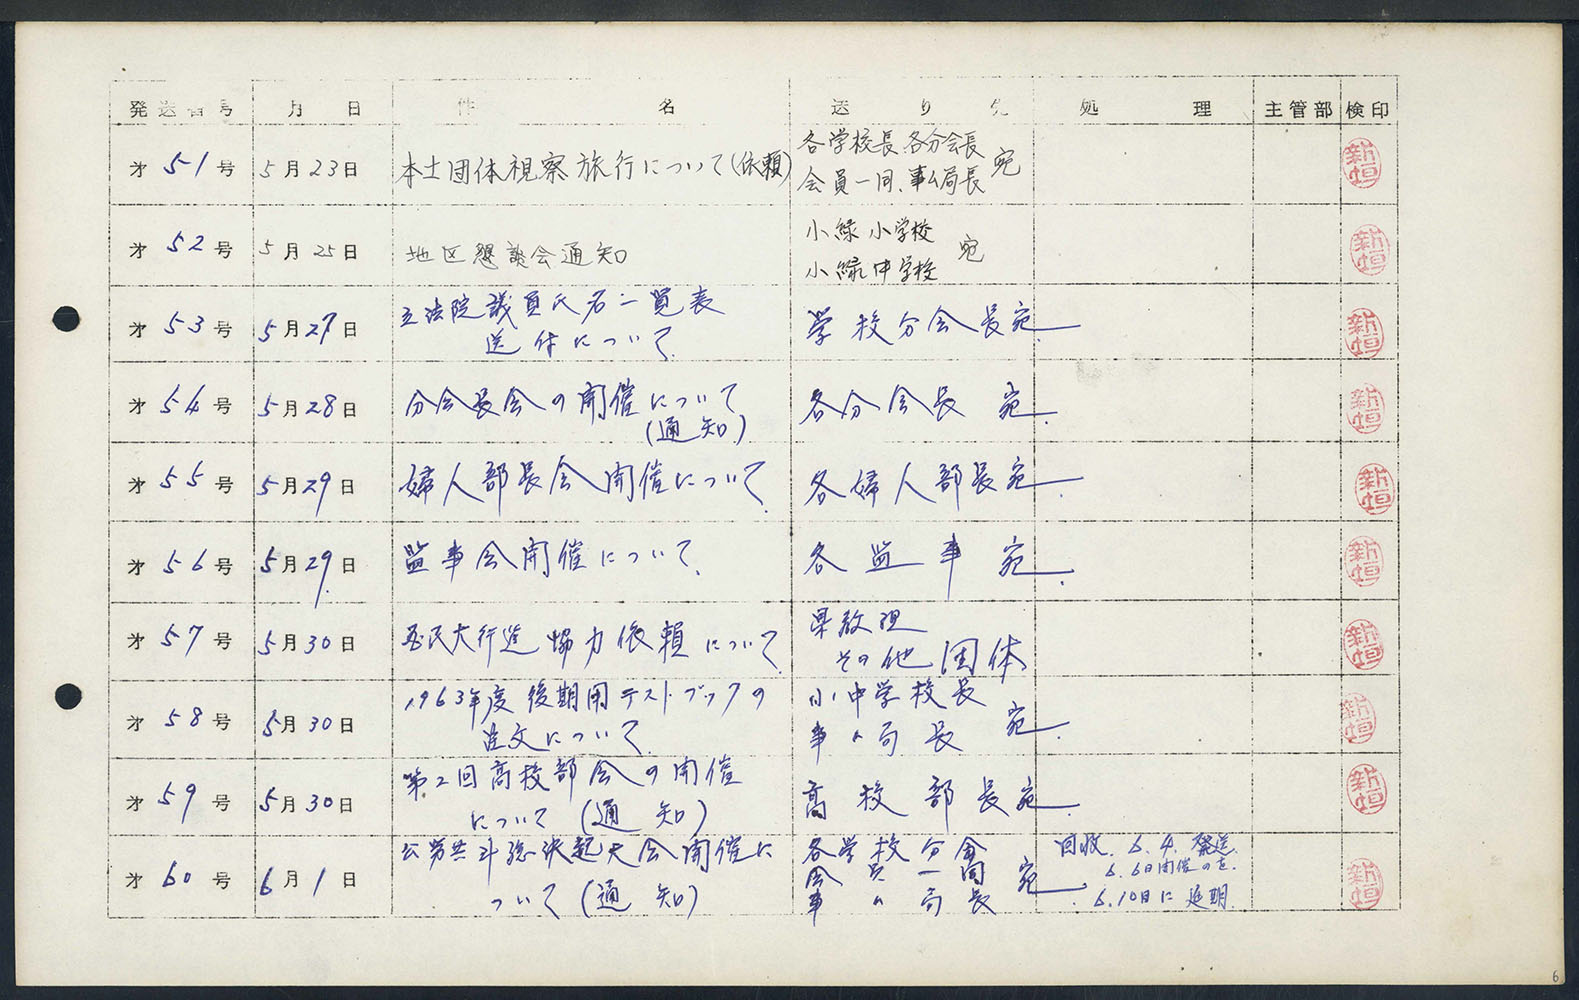 発送番号 月 日 件 名 送 り 先 処 理 主管部 検印
才 51 号 5月23日 本土団体視察旅行について(依頼) 各学校長、各分会長
会員一同、事ム局長 宛 新垣
才 52 号 5月25日 地区懇談会通知 小緑小学校
小緑中学校 宛 新垣
才 53 号 5月27日 立法院議員氏名一覧表
送付について 学校分会長宛 新垣
才 54 号 5月28日 分会長会の開催について
(通知) 各分会長 宛 新垣
才 55 号 5月29日 婦人部長会開催について 各婦人部長宛 新垣
才 56 号 5月29日 監事会開催について 各監事宛 新垣
才 57 号 5月30日 民大行進協力依頼について
その他団体 新垣
才 58 号 5月30日 1963年度後期用テストブックの
注文について 小中学校長
事ム局長 宛 新垣
才 59 号 5月30日 第2回高校部会の開催
について(通知) 高校部長宛 新垣
才 60 号 6月1日 公労共斗総決起大会開催に
ついて(通知) 各学校分会
会員一同
事ム局長 宛 回収. 6.4.発送.
6.6日開催のを.
6.10日に延期. 新垣
6